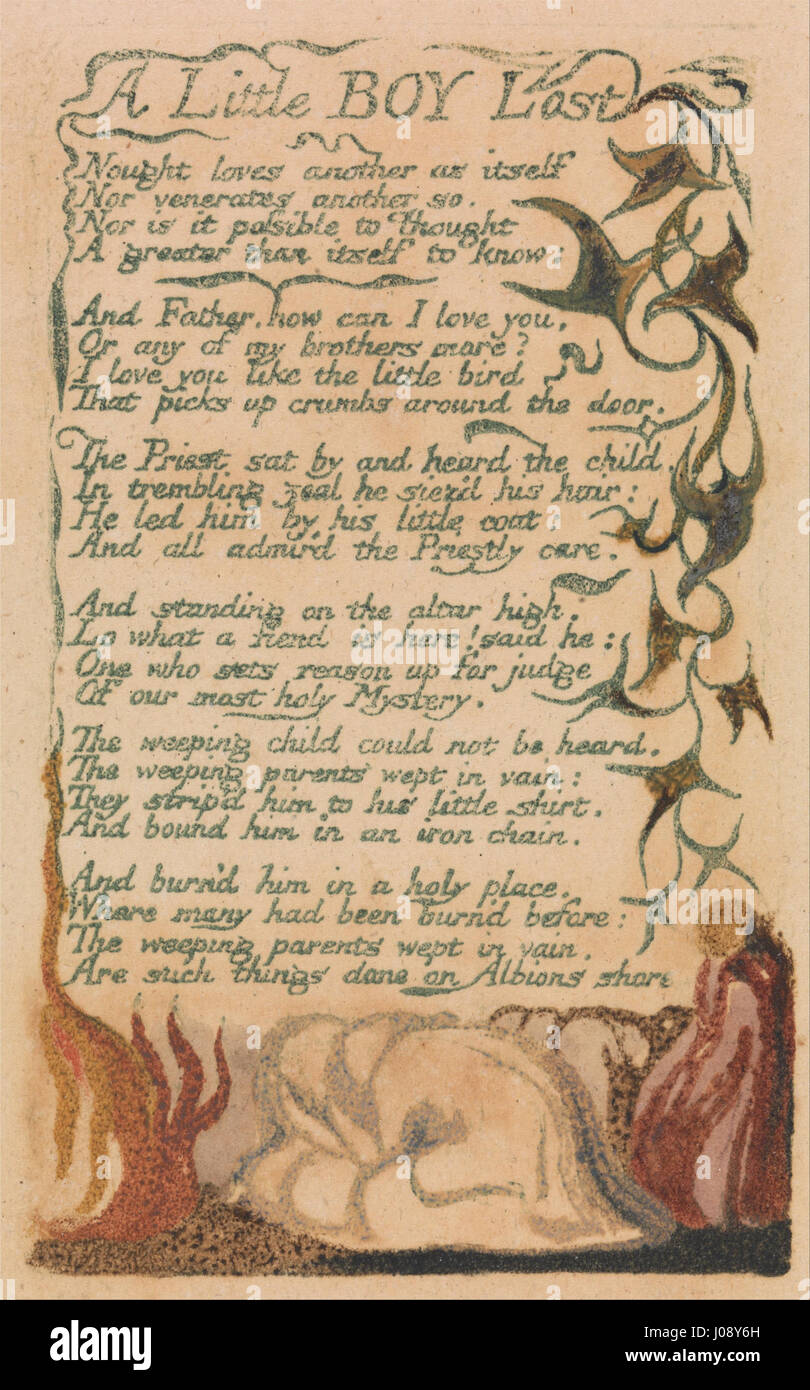 A Little BOY Lost
Nought loves another as itself
Nor venerates another so.
Nor is it poſsible to thought
A greater than itself to know:
And Father, how can I love you,
Or any of my brothers more?
I love you like the little bird
That picks up crumbs around the door.
The Priest sat by and heard the child.
In trembling zeal he siez'd his hair:
He led him by his little coat:
And all admir'd the Priestly care.
And standing on the altar high:
Lo what a fiend is here! said he:
One who sets reason up for judge
Of our most holy Mystery.
The weeping child could not be heard.
The weeping parents wept in vain:
They strip'd him to his little shirt.
And bound him in an iron chain.
And burn'd him in a holy place.
Where many had been burn'd before:
The weeping parents wept in vain.
Are such things done on Albions shore
alamy
Image ID: J08Y6H
www.alamy.com